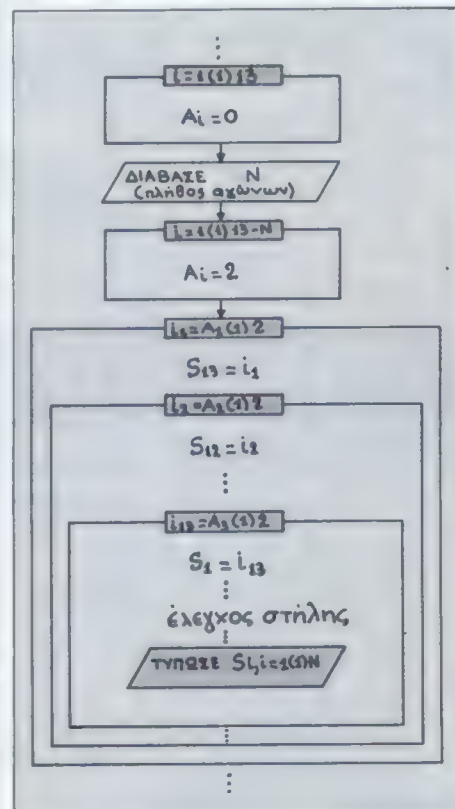 i=1(1)13
Ai=0
ΔΙΑΒΑΣΕ N
(πλήθος αγώνων)
i=1(1)13-N
Ai=2
i₁=A₁(1)2
S₁₃=i₁
i₂=A₂(1)2
S₁₂=i₂
S₁=i₁₃
έλεγχος στήλης
ΤΥΠΩΣΕ Si,i=1(1)N